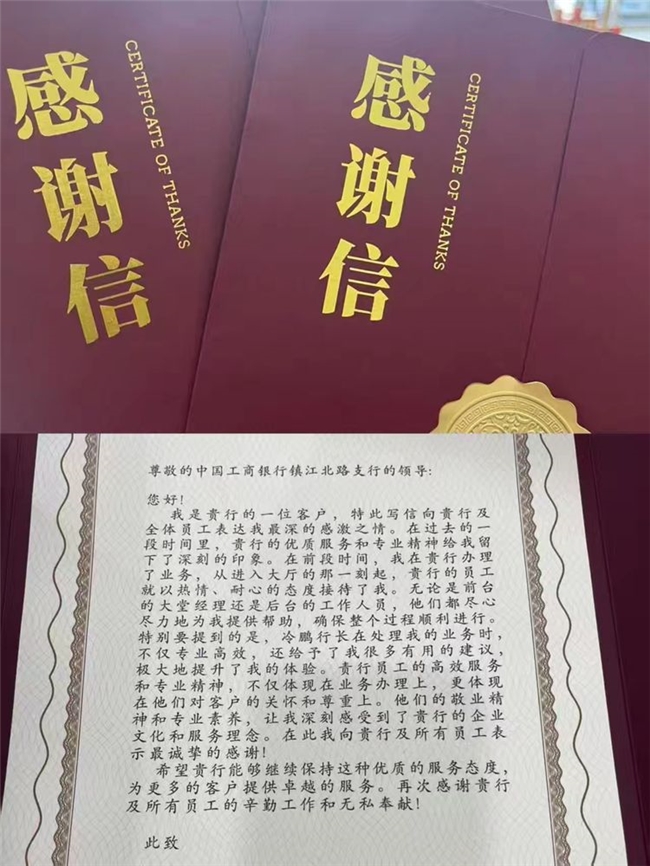 感谢信
CERTIFICATE OF THANKS
感谢信
CERTIFICATE OF THANKS
尊敬的中国工商银行镇江北路支行的领导:
您好!
我是贵行的一位客户，特此写信向贵行及
全体员工表达我最深的感激之情。在过去的一
段时间里，贵行的优质服务和专业精神给我留
下了深刻的印象。在前段时间，我在贵行办理
了业务，从进入大厅的那一刻起，贵行的员工
就以热情、耐心的态度接待了我。无论是前台
的大堂经理还是后台的工作人员，他们都尽心
尽力地为我提供帮助，确保整个过程顺利进行。
特别要提到的是，冷鹏行长在处理我的业务时，
不仅专业高效，还给予了我很多有用的建议，
极大地提升了我的体验。贵行员工的高效服务
和专业精神，不仅体现在业务办理上，更体现
在他们对客户的关怀和尊重上。他们的敬业精
神和专业素养，让我深刻感受到了贵行的企业
文化和服务理念。在此我向贵行及所有员工表
示最诚挚的感谢!
希望贵行能够继续保持这种优质的服务态度，
为更多的客户提供卓越的服务。再次感谢贵行
及所有员工的辛勤工作和无私奉献!
此致